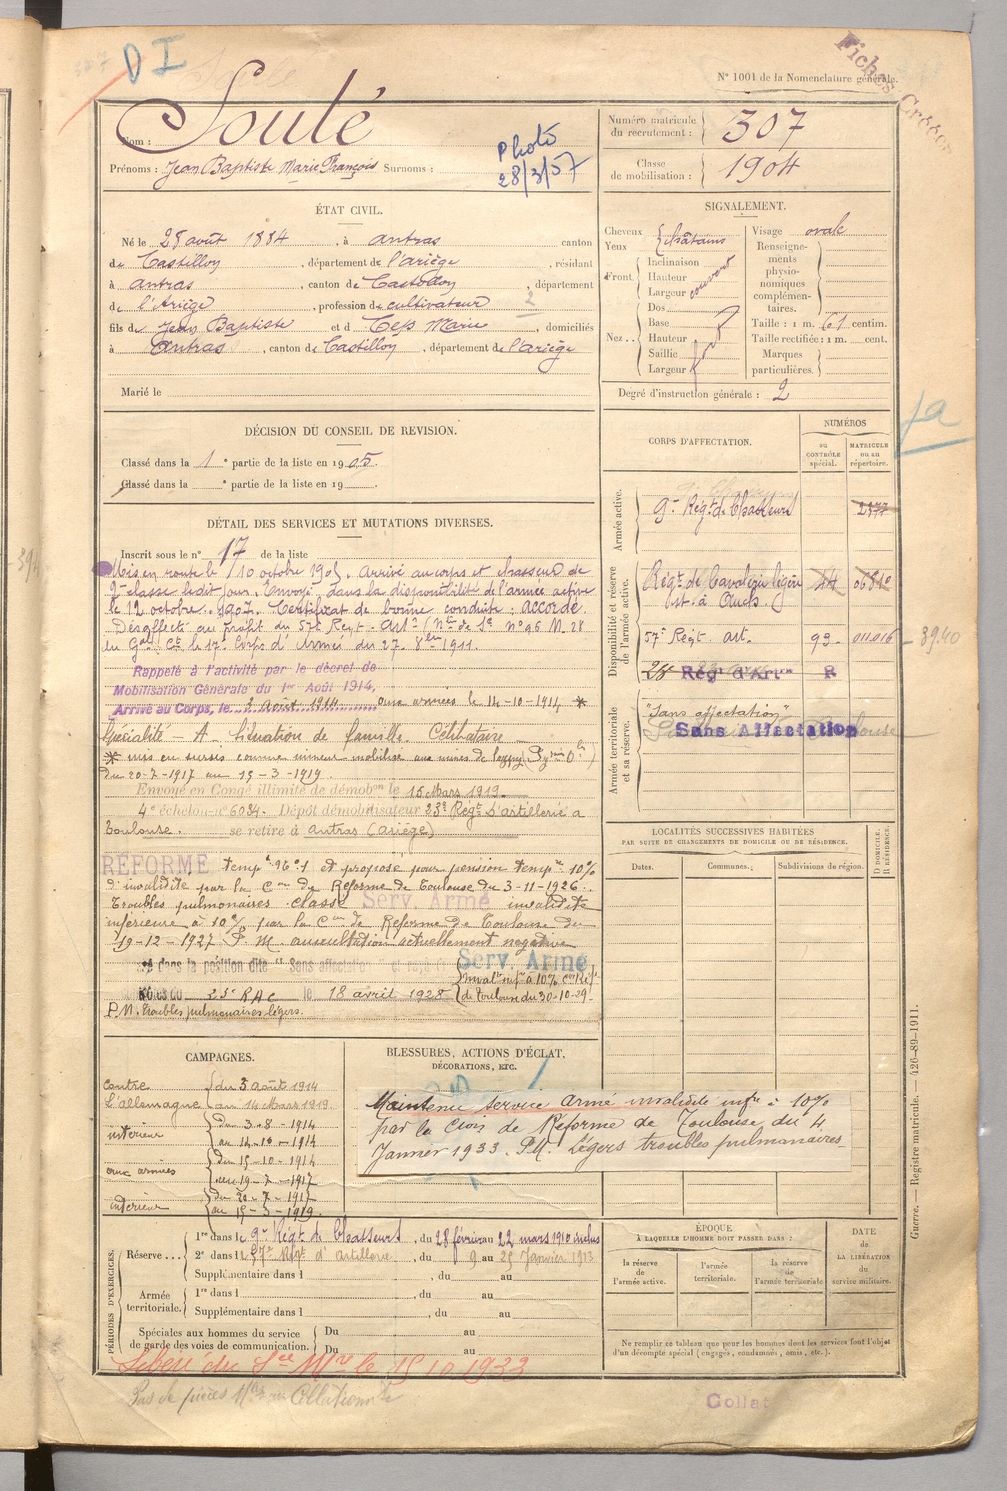 D I
N° 1001 de la Nomenclature générale.
Fiches
Nom : Soulé
Prénoms : Jean Baptiste Marie François Surnoms :
Photo
28/3/57
Numéro matricule du recrutement : 307
Classe de mobilisation : 1904
ÉTAT CIVIL.
Né le 28 août 1884, à Antras canton
de Castillon, département de l'Ariège, résidant
à Antras, canton de Castillon, département
de l'Ariège, profession de cultivateur
fils de Jean Baptiste et de Marie, domiciliés
à Antras, canton de Castillon, département de l'Ariège
Marié le
SIGNALEMENT.
Cheveux
Yeux
châtains
Front.
Inclinaison
Hauteur
Largeur
couvert
Nez..
Dos
Base
Hauteur
Saillie
Largeur
fort
Visage ovale
Renseignements physionomiques complémentaires.
Taille : 1 m. 61 centim.
Taille rectifiée : 1 m. cent.
Marques particulières.
Degré d'instruction générale : 2
DÉCISION DU CONSEIL DE REVISION.
Classé dans la 1e partie de la liste en 1905.
Classé dans la e partie de la liste en 19
CORPS D'AFFECTATION.
NUMÉROS
au CONTRÔLE spécial.
MATRICULE ou au répertoire.
Armée active.
9e Régt de Chasseurs 2377
Disponibilité et réserve de l'armée active.
Régt de Cavalerie légère
est. à Auch.
44
57e Régt art. 93 011016
3940
28 Rég d'Arte R
Armée territoriale et sa réserve.
"Sans affectation"
Sans Affectation
DÉTAIL DES SERVICES ET MUTATIONS DIVERSES.
Inscrit sous le n° 17 de la liste
Mis en route le 10 octobre 1905. Arrivé au corps et chasseur de
2e classe ledit jour. Envoyé dans la disponibilité de l'armée active
le 12 octobre 1907. Certificat de bonne conduite : accordé.
Désaffecté au profit du 57e Régt Artie (Nte de Se n° 96 M. 28
du Gal Ct le 17e Corps d'Armée du 27 8bre 1911.
Rappelé à l'activité par le décret de
Mobilisation Générale du 1er Août 1914.
Arrivé au Corps, le 3 août 1914 aux armées le 14-10-1914 *
Spécialité - A - Situation de famille. Célibataire
* mis en sursis comme mineur mobilisé aux mines de
du 20-7-1917 au 15-3-1919.
Envoyé en Congé illimité de démobon le 15 Mars 1919.
4e échelon n° 6084. Dépôt démobilisateur 23e Régt d'artillerie à
Toulouse. se retire à Antras (Ariège)
RÉFORMÉ tempre n° 1 et proposé pour pension tempre 10%
d'invalidité par la Con de Réforme de Toulouse du 3-11-1926.
Troubles pulmonaires. classé Serv. Armé invalidité
inférieure à 10% par la Con de Réforme de Toulouse du
19-12-1927 P. M. auscultation actuellement négative
dans la position dite "Sans affectation" et rayé
23e RAC le 18 avril 1928
Serv. Armé
invalté infre à 10% Con Réf.
de Toulouse du 30-10-29.
P.M. troubles pulmonaires légers.
LOCALITÉS SUCCESSIVES HABITÉES
PAR SUITE DE CHANGEMENTS DE DOMICILE OU DE RÉSIDENCE.
Dates.
Communes.
Subdivisions de région.
D DOMICILE. R RÉSIDENCE.
CAMPAGNES.
Contre l'allemagne du 3 août 1914
au 14 Mars 1919.
intérieur du 3-8-1914
au 14-10-1914
aux armées du 15-10-1914
au 19-7-1917
intérieur du 20-7-1917
au 15-3-1919.
BLESSURES, ACTIONS D'ÉCLAT,
DÉCORATIONS, ETC.
Maintenu service armé invalidité infre à 10%
par la Cion de Réforme de Toulouse du 4
Janvier 1933. P.M. Légers troubles pulmonaires
PÉRIODES D'EXERCICES.
Réserve...
1re dans le 9e Régt de Chasseurs, du 28 février au 22 mars 1910 inclus
2e dans le 57e Régt d'Artillerie, du 9 au 25 Janvier 1913
Supplémentaire dans l , du au
Armée territoriale.
1re dans l , du au
Supplémentaire dans l , du au
Spéciales aux hommes du service de garde des voies de communication.
Du au
Du au
ÉPOQUE
À LAQUELLE L'HOMME DOIT PASSER DANS :
la réserve de l'armée active.
l'armée territoriale.
la réserve de l'armée territoriale
DATE de LA LIBÉRATION du service militaire.
Ne remplir ce tableau que pour les hommes dont les services font l'objet
d'un décompte spécial (engagés, condamnés, omis, etc.).
Guerre. — Registre matricule. — 426-89-1911.
Libéré du Sce Mre le 15 10 1933
Pas de pièces
Collat